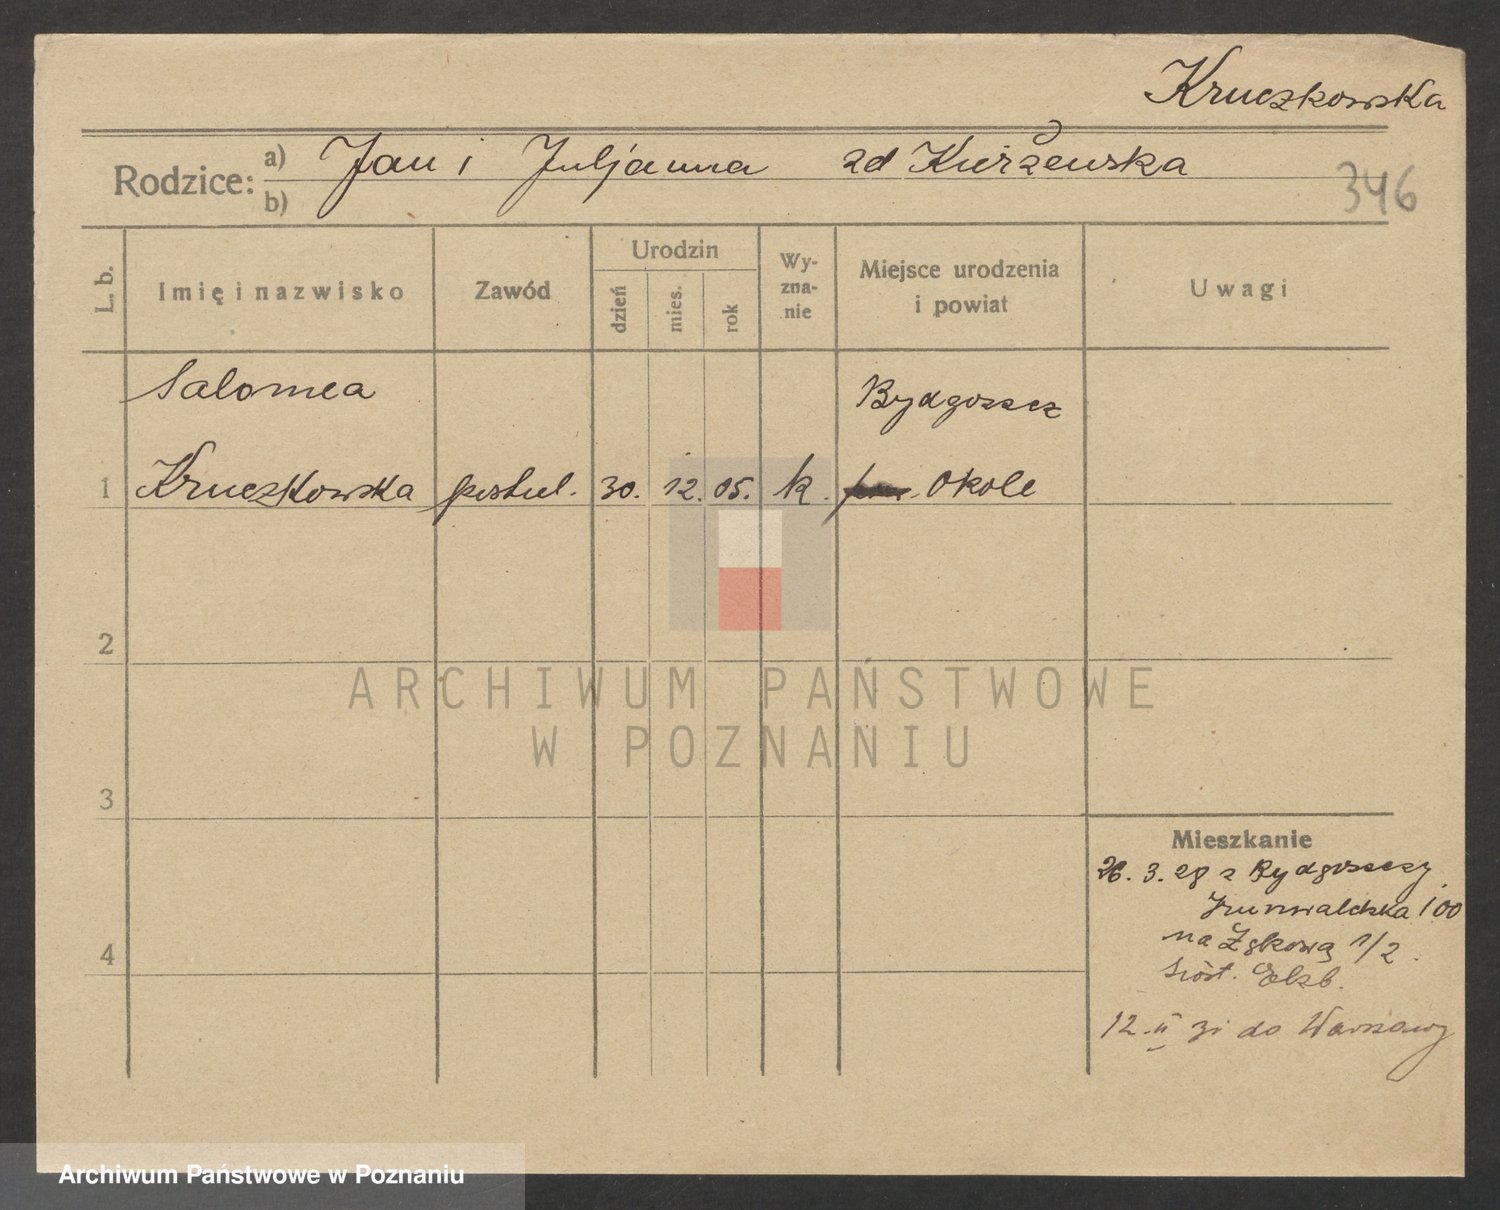 Kruczkowska
Rodzice: a) Jan i Juljanna zd Kierzewska
b)
346
L. b.
Imię i nazwisko
Zawód
Urodzin
dzień
mies.
rok
Wy-
zna-
nie
Miejsce urodzenia
i powiat
Uwagi
Salomea
Bydgoszcz
1 Kruczkowska postul. 30. 12. 05. k. Okole
2
3
4
Mieszkanie
26. 3. 28 z Bydgoszczy
Grunwaldzka 100
na Łąkową 1/2
Sióst. Elżb.
12. II 31 do Warszawy
ARCHIWUM PAŃSTWOWE
W POZNANIU
Archiwum Państwowe w Poznaniu